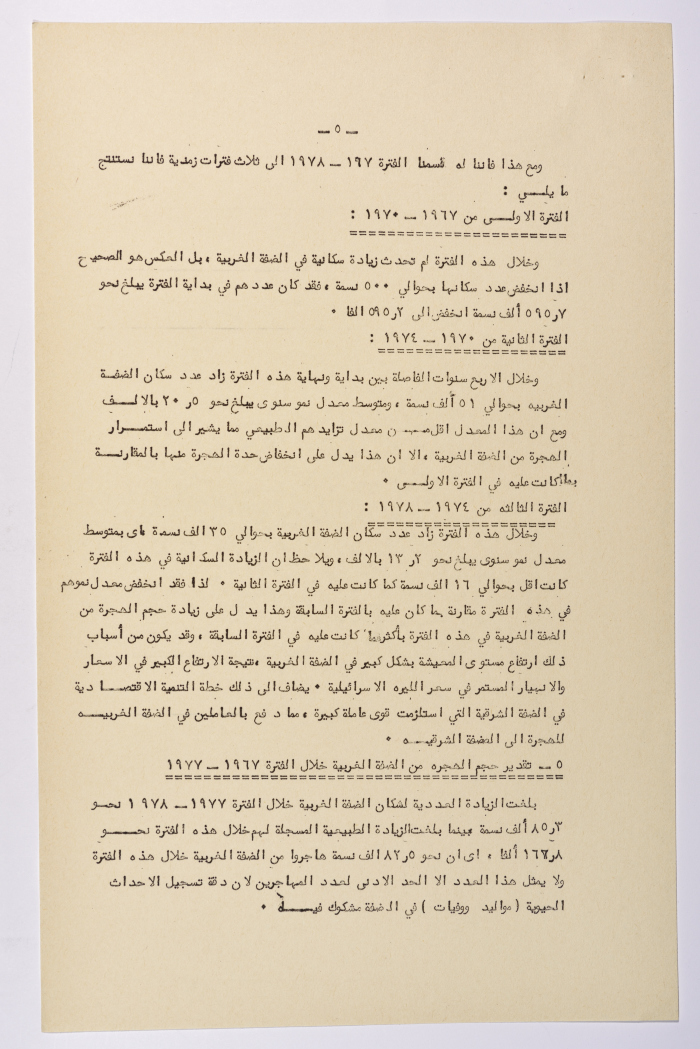 — ٥ —
ومع هذا فاننا له قسمنا الفترة ١٩٧ — ١٩٧٨ الى ثلاث فترات زمنية فاننا نستنتج
ما يلــي :
الفترة الاولــى من ١٩٦٧ — ١٩٧٠ :
وخلال هذه الفترة لم تحدث زيادة سكانية في الضفة الغربية ، بل العكس هو الصحيح
اذا انخفض عدد سكانها بحوالي ٥٠٠ نسمة ، فقد كان عددهم في بداية الفترة يبلغ نحو
٧ر٥٩٥ ألف نسمة انخفض الى ٢ر٥٩٥ الفا ٠
الفترة الثانية من ١٩٧٠ — ١٩٧٤ :
وخلال الاربع سنوات الفاصلة بين بداية ونهاية هذه الفترة زاد عدد سكان الضفــة
الغربيه بحوالي ٥١ ألف نسمة ، ومتوسط معدل نمو سنوى يبلغ نحو ٥ر٢٠ بالالــف
ومع ان هذا المعدل اقل مــن معدل تزايدهم الطبيعي مما يشير الى استمــرار
الهجرة من الضفة الغربية ، الا ان هذا يدل على انخفاض حدة الهجرة منها بالمقارنــة
بما كانت عليه في الفترة الاولــى ٠
الفترة الثالثه من ١٩٧٤ — ١٩٧٨ :
وخلال هذه الفترة زاد عدد سكان الضفة الغربية بحوالي ٣٥ الف نسمة اى بمتوسط
معدل نمو سنوى يبلغ نحو ٢ر١٣ بالالف ، ويلاحظ ان الزيادة السكانية في هذه الفترة
كانت اقل بحوالي ١٦ الف نسمة كما كانت عليه في الفترة الثانية ٠ لذا فقد انخفض معدل نموهم
في هذه الفترة مقارنة بما كان عليه بالفترة السابقة وهذا يدل على زيادة حجم الهجرة من
الضفة الغربية في هذه الفترة بأكثر مما كانت عليه في الفترة السابقة ، وقد يكون من أسباب
ذلك ارتفاع مستوى المعيشة بشكل كبير في الضفة الغربية ، نتيجة الارتفاع الكبير في الاسعار
والانهيار المستمر في سعر الليره الاسرائيلية ٠ يضاف الى ذلك خطة التنمية الاقتصـادية
في الضفة الشرقية التي استلزمت قوى عاملة كبيرة ، مما دفع بالعاملين في الضفة الغربيــه
للهجرة الى الضفة الشرقيــه ٠
٥ — تقدير حجم الهجره من الضفة الغربية خلال الفترة ١٩٦٧ — ١٩٧٧
بلغت الزيادة العددية لسكان الضفة الغربية خلال الفترة ١٩٧٧ — ١٩٧٨ نحــو
٣ر٨٥ ألف نسمة بينما بلغت الزيادة الطبيعية المسجلة لهم خلال هذه الفترة نحــو
٨ر١٦٧ ألفا ، اى ان نحو ٥ر٨٢ الف نسمة هاجروا من الضفة الغربية خلال هذه الفترة
ولا يمثل هذا العدد الا الحد الادنى لعدد المهاجرين لان دقة تسجيل الاحداث
الحيوية ( مواليد ووفيات ) في الضفة مشكوك فيــه ٠